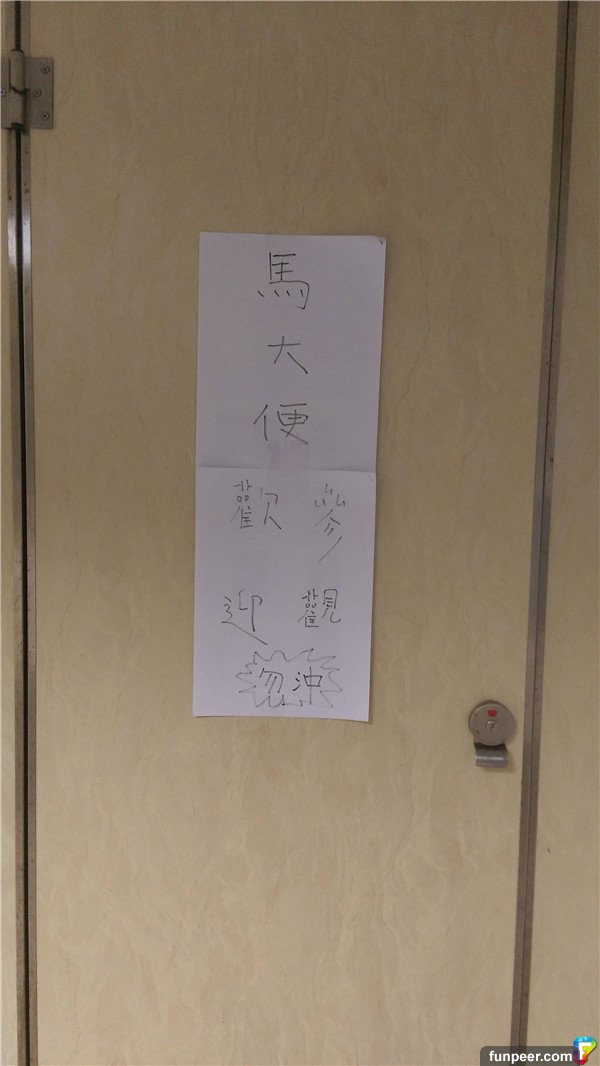 馬大便
歡迎
參觀
勿沖
funpeer.com